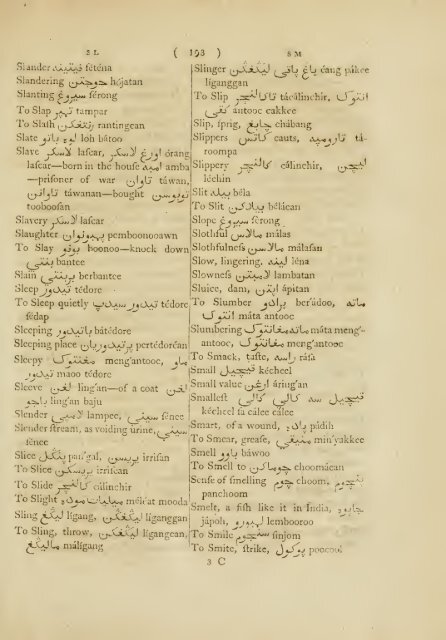 S L ( 193 ) S M
Slander فيتينه féténa
Slandering hójatan
Slanting سيروڠ ſérong
To Slap تمڤر tampar
To Slaſh رنتڠكن rantingcan
Slate لوه باتو loh bátoo
Slave لاسكر laſcar, اورڠ لاسكر órang
laſcar—born in the houſe امبه amba
—priſoner of war تاوان táwan,
تاوانن táwanan—bought توبوسن
toobooſan
Slavery لاسكر laſcar
Slaughter pemboonooawn
To Slay بونو boonoo—knock down
بنتي bantee
Slain بربنتي berbantee
Sleep تيدور tédore
To Sleep quietly تيدور سيدڤ tédore
ſédap
Sleeping باتيدور bátédore
Sleeping place ڤرتيدوريان pertédoréan
Sleepy مڠنتوك meng'antooc, ماو
تيدور maoo tédore
Sleeve لڠن ling'an—of a coat لڠن
باجو ling'an baju
Slender لامڤي lampee, سيني ſénee
Slender ſtream, as voiding urine, سيني
ſénee
Slice pan'gal, ايريسن irriſan
To Slice ايريسكن irriſcan
To Slide كالنچر cálinchir
To Slight méli'at mooda
Sling ليڠڬڠ lígang, ليڠڬڠن líganggan
To Sling, throw, ليڠڬڠكن lígangcan,
ماليڠڬڠ málígang
Slinger چاڠ ڤاكي ليڠڬڠن cang pákee
líganggan
To Slip تاكالنچر tácálinchir, انتوك
كفي ántooc cakkee
Slip, ſprig, چابڠ chábang
Slippers كاتس cátſs, تارومڤه tá-
roompa
Slippery كالنچر cálinchir, ليچن
léchin
Slit بيله béla
To Slit بيلاكن bélácan
Slope سيروڠ ſérong
Slothful مالاس málas
Slothfulneſs مالاسن málaſan
Slow, lingering, لينه léna
Slowneſs لامبتن lambatan
Sluice, dam, اڤيتن ápitan
To Slumber برادو ber'ádoo, ماته
انتوك máta antooc
Slumbering ماته مڠانتوك máta meng'-
antooc, مڠانتوك meng'antooc
To Smack, taſte, راس ráſa
Small كيچيل kécheel
Small value ارڠن áring'an
Smalleſt كيچيل سه كالي كالي
kécheel ſa cálee cálee
Smart, of a wound, ڤاده pádih
To Smear, greaſe, منيڠكي min'yakkee
Smell باوو báwoo
To Smell to چوماكن choomácan
Senſe of ſmelling چوم choom, ڤنچوم
panchoom
Smelt, a fiſh like it in India, جاڤوه
jápoh, لمبورو lembooroo
To Smile سنجوم ſinjom
To Smite, ſtrike, ڤوكول poocool
3 C